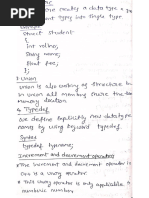 create a data type
different types into single type.
Struct student
{
int rollno;
float fee;
};
Union
Union is also working of structure
union all members share the
memory location
4 Typedef
we define explicitly new data type
name by using keyword typedef.
Syntax
typedef typename;
Increment and decrement operator
The increment and decrement operator is
one is a unary operator.
This unary operator is only applicable
numberic number.